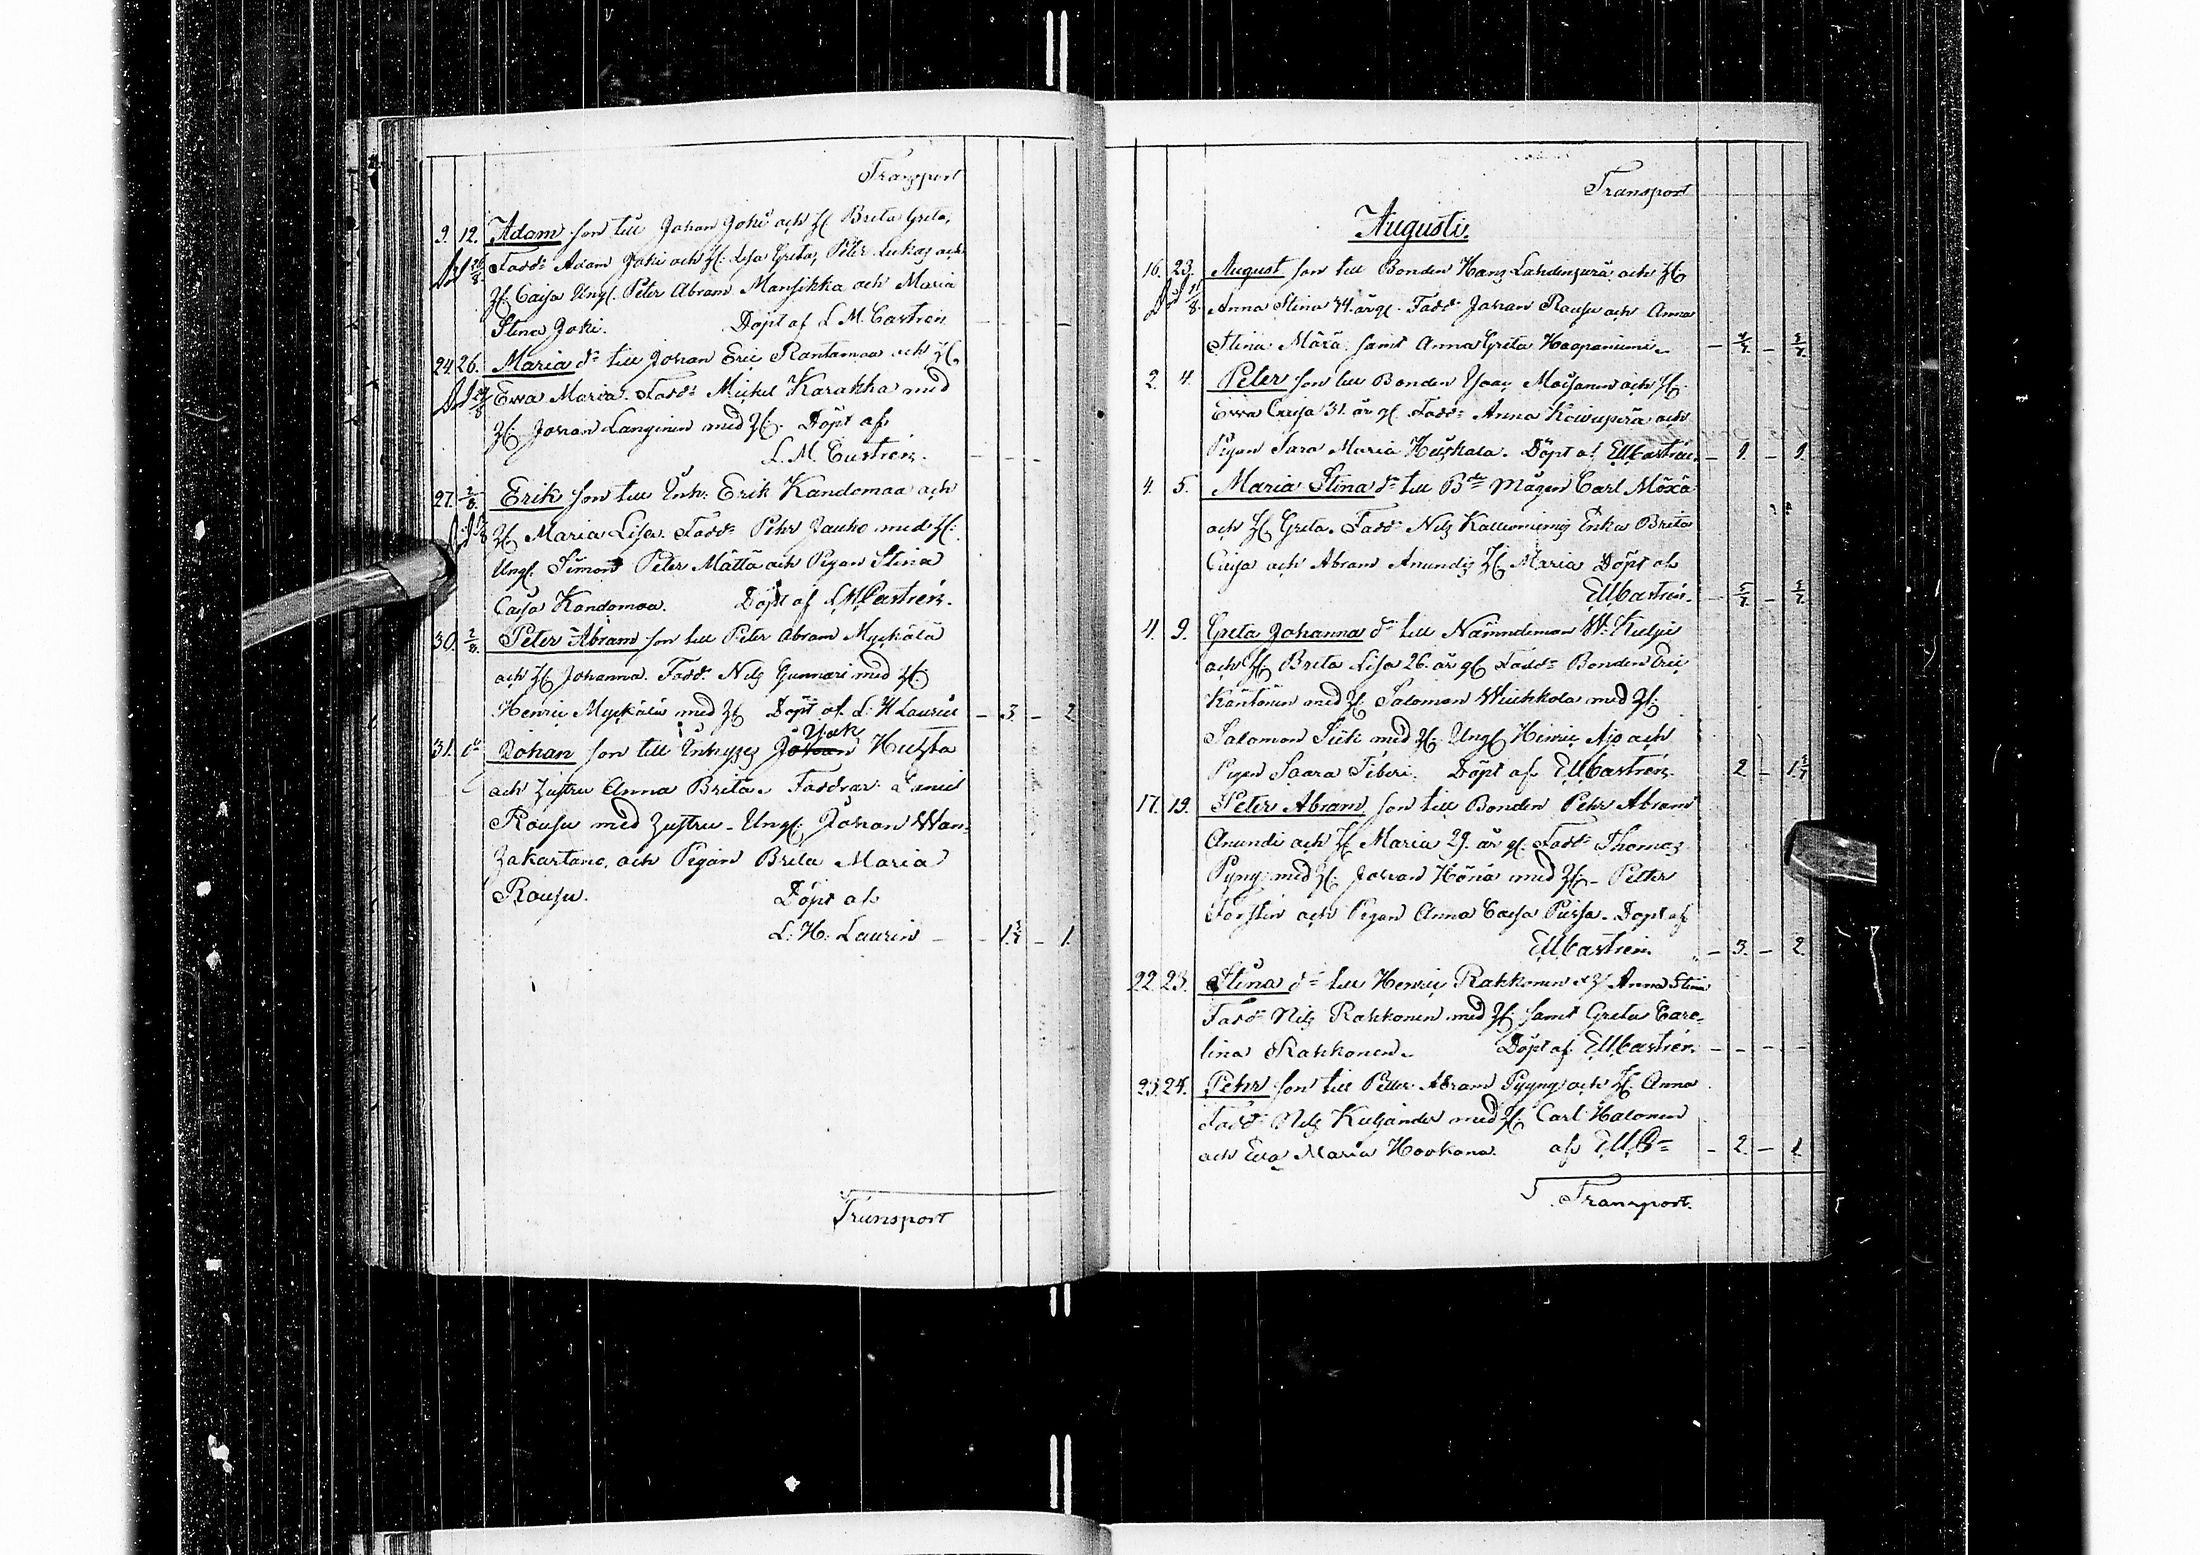 Transport
9. 12. Adam son till Johan Joki och H. Brita Greta,
Fadd: Adam Joki och H. Lisa Greta, Peter Lukas och
H. Caisa Ungl. Peter Abram Mansikka och Maria
Stina Joki. Döpt af L M Castrén
24 26. Maria dr till Johan Eric Rantamaa och H.
Ewa Maria. Fadd: Mickel Karakka med
H. Johan Langinen med H. Döpt af
L. M. Castrén.
27. 2/8. Erik son till Inh: Erik Kandomaa och
H. Maria Lisa. Fadd: Pehr Jauho med H.
Ungl. Simon Peter Mättä och Pigan Stina
Caisa Kandomaa. Döpt af L M Castrén.
30. 2/8. Peter Abram son till Peter Abram Myckälä
och H. Johanna. Fadd: Nils Gunnari med H.
Henric Myckälä med H. Döpt af L. H Laurin - 3. - 2
Isak
31. do Johan son till Inhyses Johan Huhta
och hustru Anna Brita. Faddrar
Rousu med hustru - Ungl. Johan Wan-
hakartano, och Pigan Brita Maria
Rousu. Döpt af
L. H. Laurin - 1. - 1.
Transport
Transport
Augusti.
16. 23. August son till Bonden Hans Lahdenperä och H.
Anna Stina 34. år gl. Fadd: Johan Rousu och Anna
Stina Märä samt Anna Greta Haapaniemi.
2. 4. Peter son till Bonden Isaac Moisanen och H.
Ewa Caisa 31. år gl. Fadd: Anna Koivuperä och
Pigan Sara Maria Heiskala. Döpt af EMCastrén. - 1. - 1.
4. 5. Maria Stina dr till Bde Mågen Carl Möxä
och H. Greta. Fadd: Nils Kallioniemis Enka Brita
Caisa och Abram Anundis H. Maria Döpt af
EMCastrén. - 5/7 - 5/7
4. 9. Greta Johanna dr till Nämndeman W. Kulpi
och H. Brita Lisa 26. år gl. Fadd: Bonden Eric
Käntönen med H. Salomon Wiehkola med H.
Salomon Siik med H. Ungl. Henric Ajo och
Pigan Saara Siberi. Döpt af EMCastrén. 2 -
17. 19. Peter Abram son till Bonden Pehr Abram
Anundi och H. Maria 29. år gl. Fadd: Thomas
Pyng med H. Johan Hönä med H. - Petter
Torstin och Pigan Anna Caisa Puisa. Döpt af
EMCastrén. - 3. - 2
22 23. Stina dr till Henric Rahkonen o H Anna Stina
Fadd: Nils Rahkonen med H. samt Greta Caro-
lina Rahkonen. Döpt af EMCastrén. - - - -
23. 24. Pehr son till Petter Abram Pyyng och H. Anna
Fadd: Nils Kuljander med H. Carl Halonen
och Ewa Maria Hookana. af EMC= - 2. - 1.
Transport.